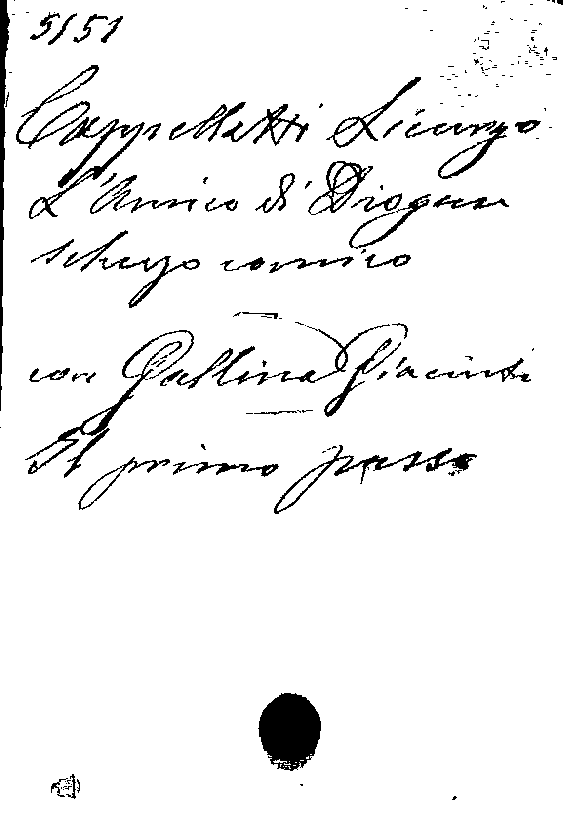 5151
Cappelletti Licurgo
L'Amico di Diogene
scherzo comico
con Gallina Giacinto
Il primo passo